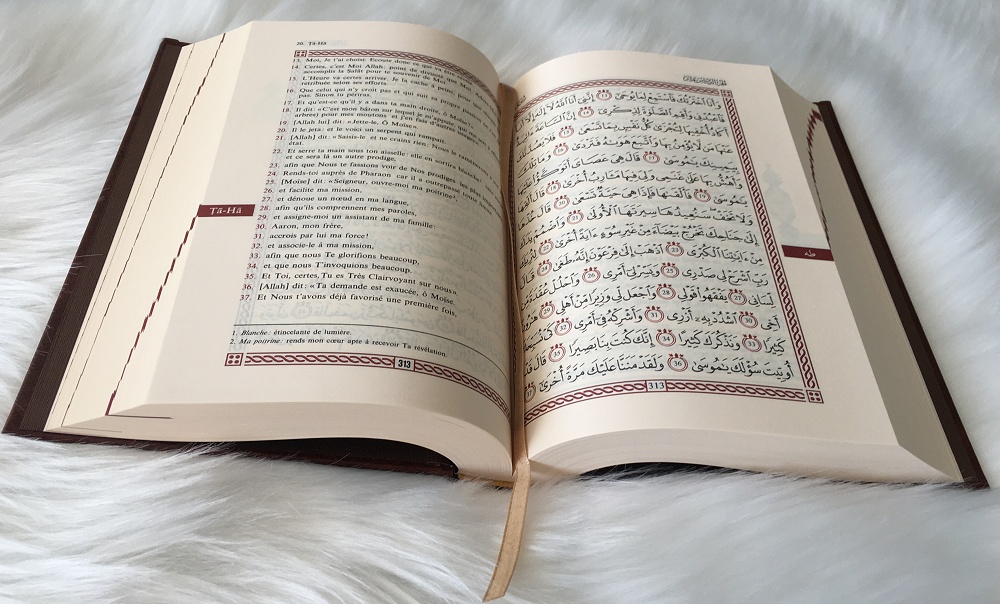 20. Ṭā-Hā
13. Moi, Je t'ai choisi. Écoute donc ce qui
14. Certes, c'est Moi Allah: point de divinité
accomplis la Ṣalāt pour te souvenir de Moi.
15. L'Heure va certes arriver. Je la cache à peine, pour
retribuée selon ses efforts.
16. Que celui qui n'y croit pas et qui suit sa propre passion
pas. Sinon tu périras.
17. Et qu'est-ce qu'il y a dans ta main droite, ô Moïse?»
18. Il dit: «C'est mon bâton sur lequel je m'appuie, qui me
arbres) pour mes moutons et j'en fais d'autres
19. [Allah lui] dit: «Jette-le, Ô Moïse».
20. Il le jeta: et le voici un serpent qui rampait.
21. [Allah] dit: «Saisis-le et ne crains rien: Nous le ramènerons
état.
22. Et serre ta main sous ton aisselle: elle en sortira blanche
et ce sera là un autre prodige,
23. afin que Nous te fassions voir de Nos prodiges les plus
24. Rends-toi auprès de Pharaon car il a outrepassé toute
25. [Moïse] dit: «Seigneur, ouvre-moi ma poitrine²,
26. et facilite ma mission,
27. et dénoue un nœud en ma langue,
28. afin qu'ils comprennent mes paroles,
29. et assigne-moi un assistant de ma famille:
30. Aaron, mon frère,
31. accrois par lui ma force!
32. et associe-le à ma mission,
33. afin que nous Te glorifions beaucoup,
34. et que nous T'invoquions beaucoup.
35. Et Toi, certes, Tu es Très Clairvoyant sur nous»
36. [Allah] dit: «Ta demande est exaucée, ô Moïse.
37. Et Nous t'avons déjà favorisé une première fois,
Ṭā-Hā
1. Blanche: étincelante de lumière.
2. Ma poitrine: rends mon cœur apte à recevoir Ta révélation.
313
وَأَنَا ٱخْتَرْتُكَ فَٱسْتَمِعْ لِمَا يُوحَىٰٓ ١٣ إِنَّنِىٓ أَنَا ٱللَّهُ لَآ إِلَٰهَ إِلَّآ
فَٱعْبُدْنِى وَأَقِمِ ٱلصَّلَوٰةَ لِذِكْرِىٓ ١٤ إِنَّ ٱلسَّاعَةَ
أَكَادُ أُخْفِيهَا لِتُجْزَىٰ كُلُّ نَفْسٍۭ بِمَا تَسْعَىٰ ١٥ فَلَا
عَنْهَا مَن لَّا يُؤْمِنُ بِهَا وَٱتَّبَعَ هَوَىٰهُ فَتَرْدَىٰ ١٦ وَمَا تِلْكَ
بِيَمِينِكَ يَٰمُوسَىٰ ١٧ قَالَ هِىَ عَصَاىَ أَتَوَكَّؤُا۟
وَأَهُشُّ بِهَا عَلَىٰ غَنَمِى وَلِىَ فِيهَا مَـَٔارِبُ أُخْرَىٰ ١٨ قَالَ
١٩ فَأَلْقَىٰهَا فَإِذَا هِىَ حَيَّةٌ تَسْعَىٰ ٢٠ قَالَ
وَلَا تَخَفْ سَنُعِيدُهَا سِيرَتَهَا ٱلْأُولَىٰ ٢١ وَٱضْمُمْ يَدَكَ
إِلَىٰ جَنَاحِكَ تَخْرُجْ بَيْضَآءَ مِنْ غَيْرِ سُوٓءٍ ءَايَةً أُخْرَىٰ ٢٢
مِنْ ءَايَٰتِنَا ٱلْكُبْرَى ٢٣ ٱذْهَبْ إِلَىٰ فِرْعَوْنَ إِنَّهُۥ طَغَىٰ ٢٤ قَالَ
رَبِّ ٱشْرَحْ لِى صَدْرِى ٢٥ وَيَسِّرْ لِىٓ أَمْرِى ٢٦ وَٱحْلُلْ عُقْدَةً مِّن
لِّسَانِى ٢٧ يَفْقَهُوا۟ قَوْلِى ٢٨ وَٱجْعَل لِّى وَزِيرًا مِّنْ أَهْلِى ٢٩ هَٰرُونَ
أَخِى ٣٠ ٱشْدُدْ بِهِۦٓ أَزْرِى ٣١ وَأَشْرِكْهُ فِىٓ أَمْرِى ٣٢ كَىْ نُسَبِّحَكَ
كَثِيرًا ٣٣ وَنَذْكُرَكَ كَثِيرًا ٣٤ إِنَّكَ كُنتَ بِنَا بَصِيرًا ٣٥ قَالَ قَدْ
أُوتِيتَ سُؤْلَكَ يَٰمُوسَىٰ ٣٦ وَلَقَدْ مَنَنَّا عَلَيْكَ مَرَّةً أُخْرَىٰٓ ٣٧
طه
313